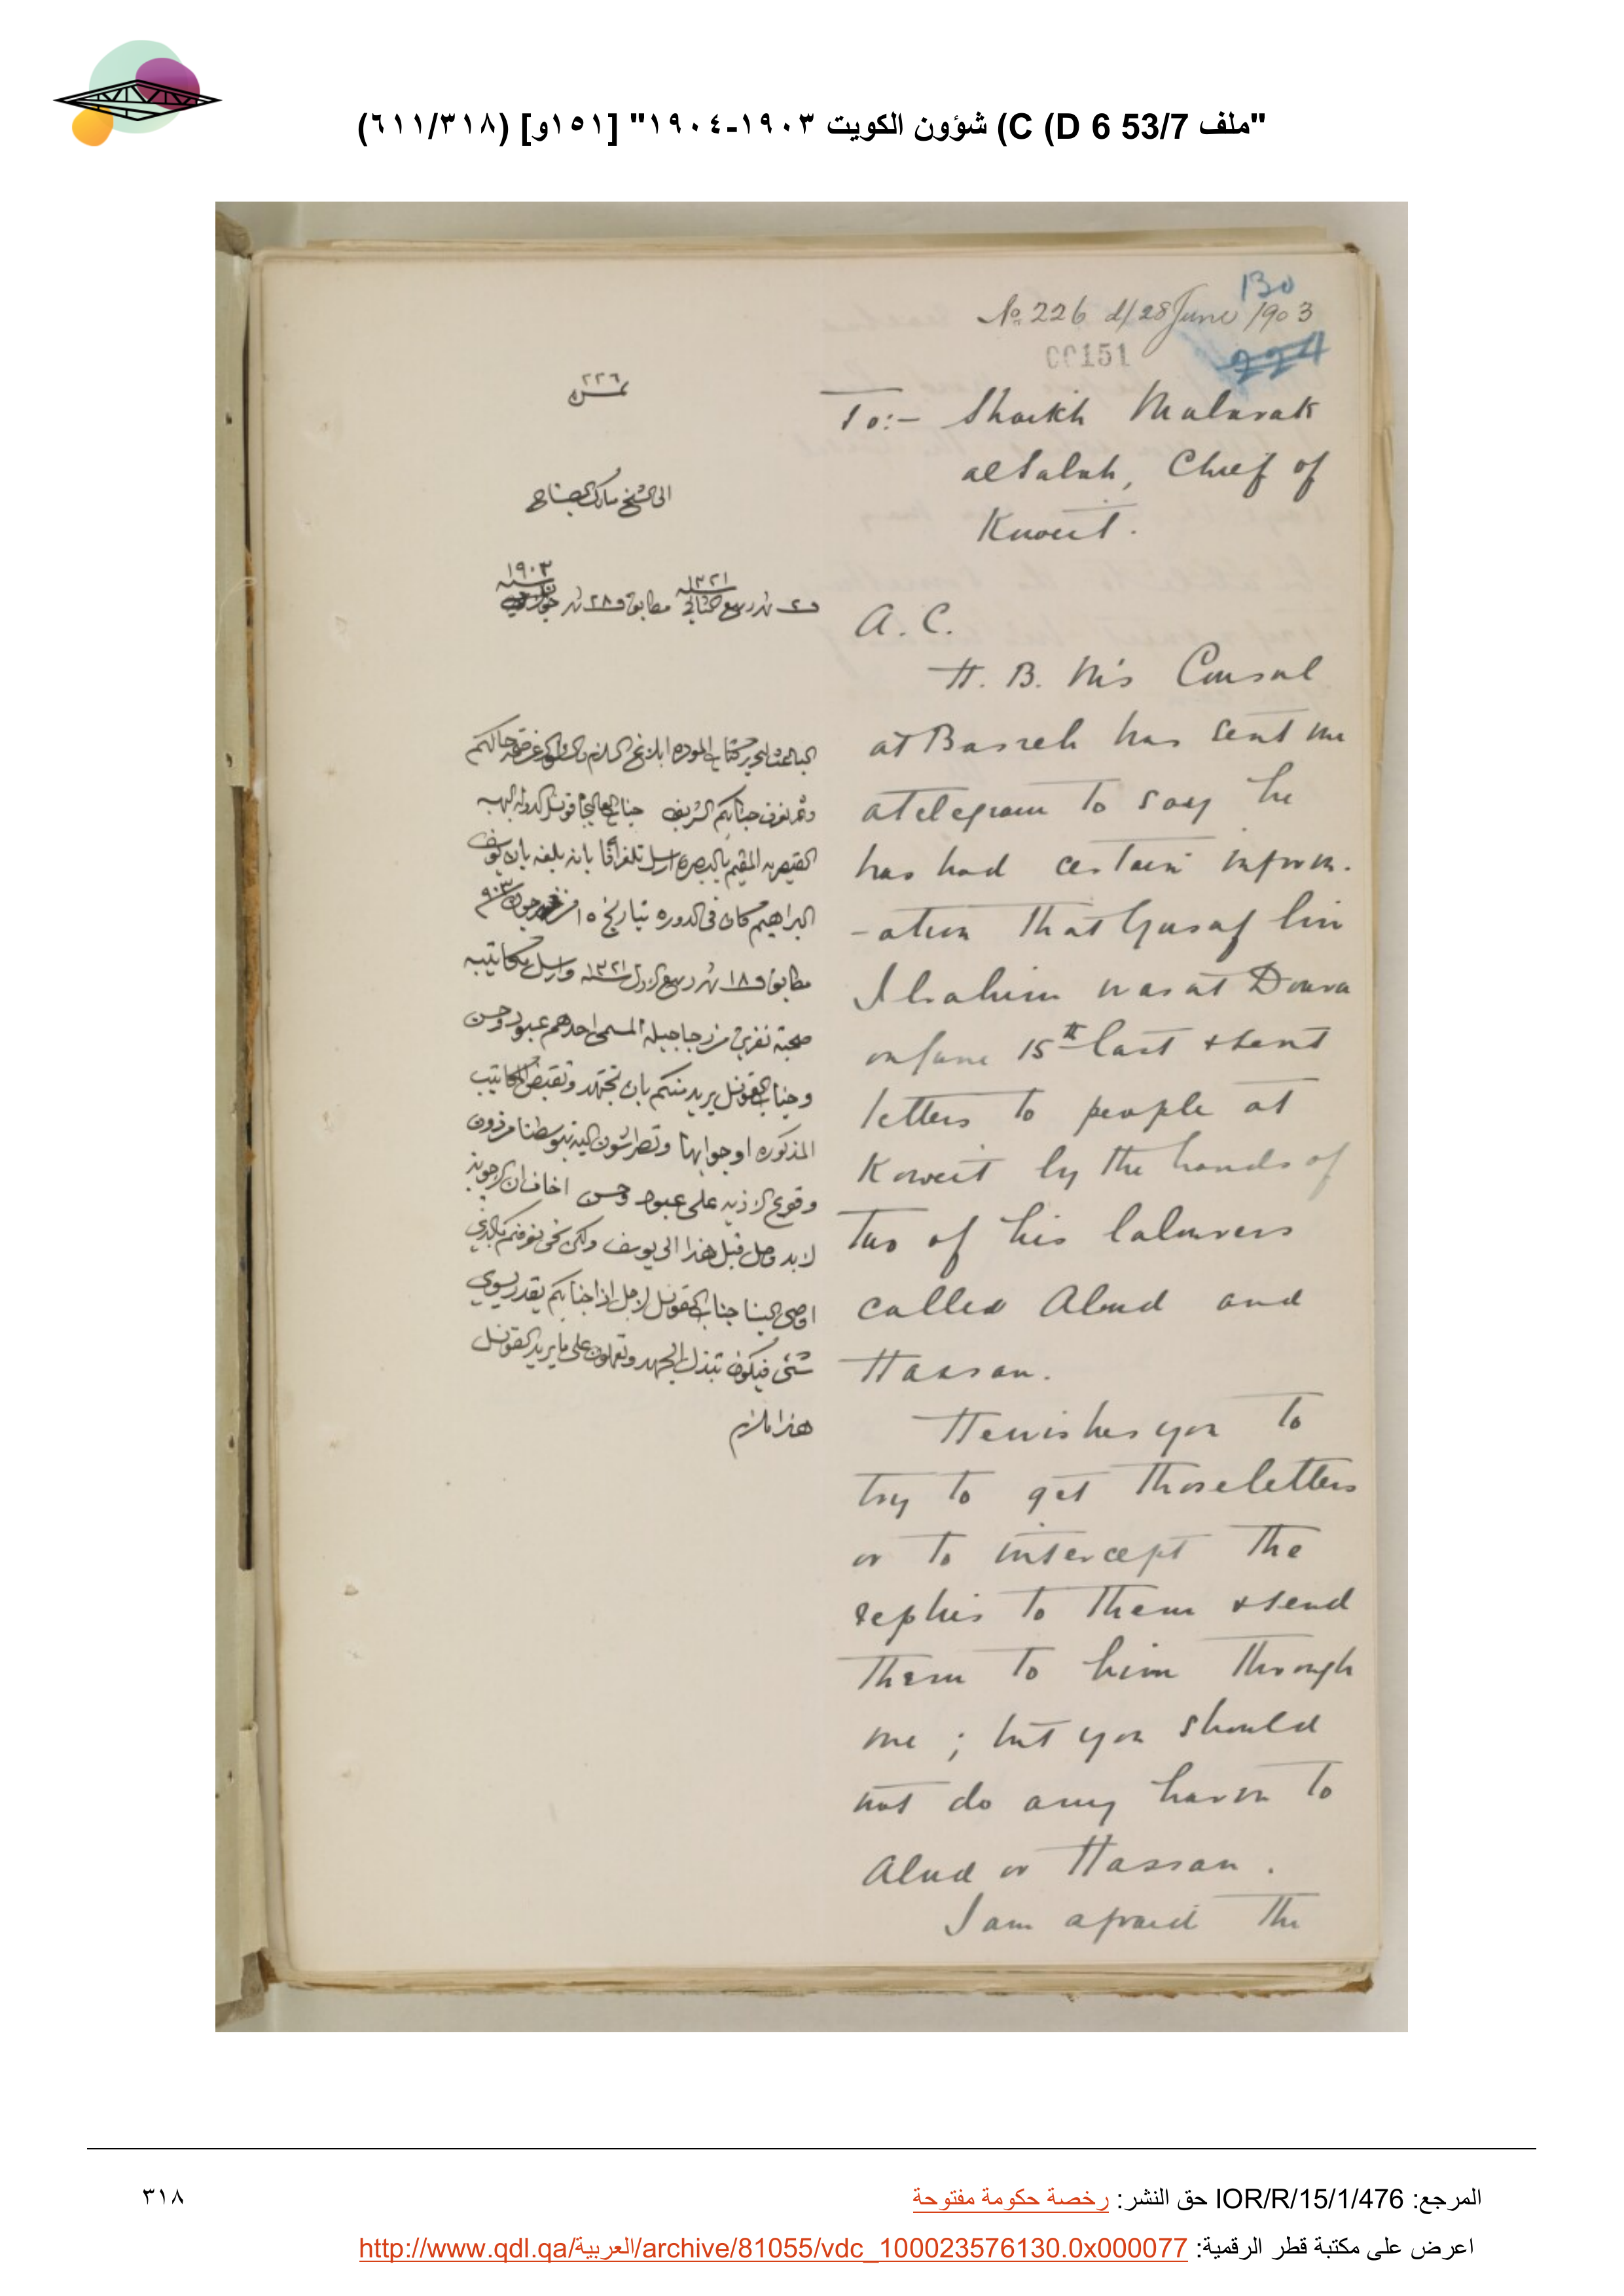 "ملف 53/7 C (D 6) شؤون الكويت ١٩٠٣-١٩٠٤" [١٥١و] (٦١١/٣١٨)
130
No. 226 d/ 28 June 1903
00151
224
To:- Shaikh Mubarak
al Sabah, Chief of
Kuweit.
A. C.
H. B. M's Consul
at Basreh has sent me
a telegram to say he
has had certain inform-
-ation that Yusaf bin
Ibrahim was at Doura
on June 15th last & sent
letters to people at
Koweit by the hands of
two of his labourers
called Abud and
Hassan.
He wishes you to
try to get those letters
or to intercept the
replies to them & send
them to him through
me ; but you should
not do any harm to
Abud or Hassan.
I am afraid the
٢٢٦
نمره
الى الشيخ مبارك الصباح
في ٢ شهر ربيع الثاني ١٣٢١ مطابق في ٢٨ شهر جون سنه ١٩٠٣
الباعث لتحرير كتاب الموده ابلاغ السلام والسؤال عن صحة حالكم
وثم نعرف جنابكم الشريف جناب العاليجاه قونسل الدولة البهيه
القيصريه المقيم بالبصره ارسل تلغرافا بانه بلغه بان يوسف
البراهيم كان في الدوره بتاريخ ١٥ جون ٩٠٣
مطابق في ١٨ شهر ربيع الاول سنه ١٣٢١ وارسل مكاتيبه
صحبة نفرين من المسمى احدهم عبود وحسن
وجناب القونسل يريد منكم بان تجتهد وتقبض المكاتيب
المذكوره او جوابها وتطرشون اليه بتوسطنا من دون
وقوع الاذيه على عبود وحسن اخاف ان الاجوبه
لابد وصل قبل هذا الى يوسف ولكن نحن نعرفكم بالذي
اوصى الينا جناب القونسل لاجل اذا جنابكم يقدر يسوي
شئ فيكون تبذل الجهد وتعملون على ما يريد القونسل
هذا ما لزم
المرجع: IOR/R/15/1/476 حق النشر: رخصة حكومة مفتوحة
٣١٨
اعرض على مكتبة قطر الرقمية: http://www.qdl.qa/العربية/archive/81055/vdc_100023576130.0x000077